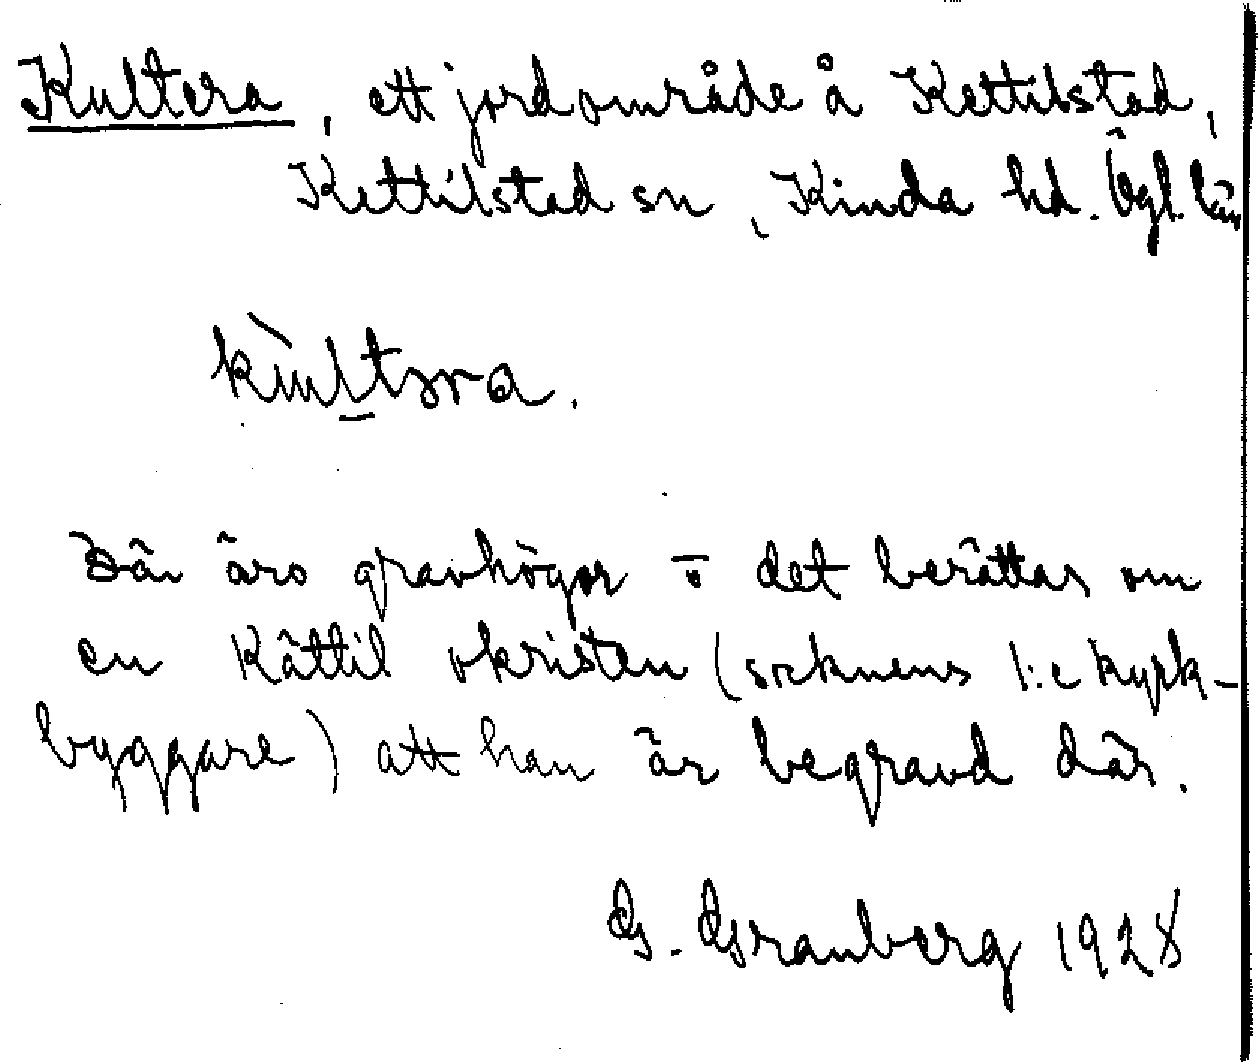 Kultera, ett jordområde å Kettilstad,
Kettilstad sn, Kinda hd. Ögl. län
Där äro gravhögar o det berättas om
en Kättil okristen (socknens 1:e kyrk-
byggare) att han är begravd där.
G. Granberg 1928